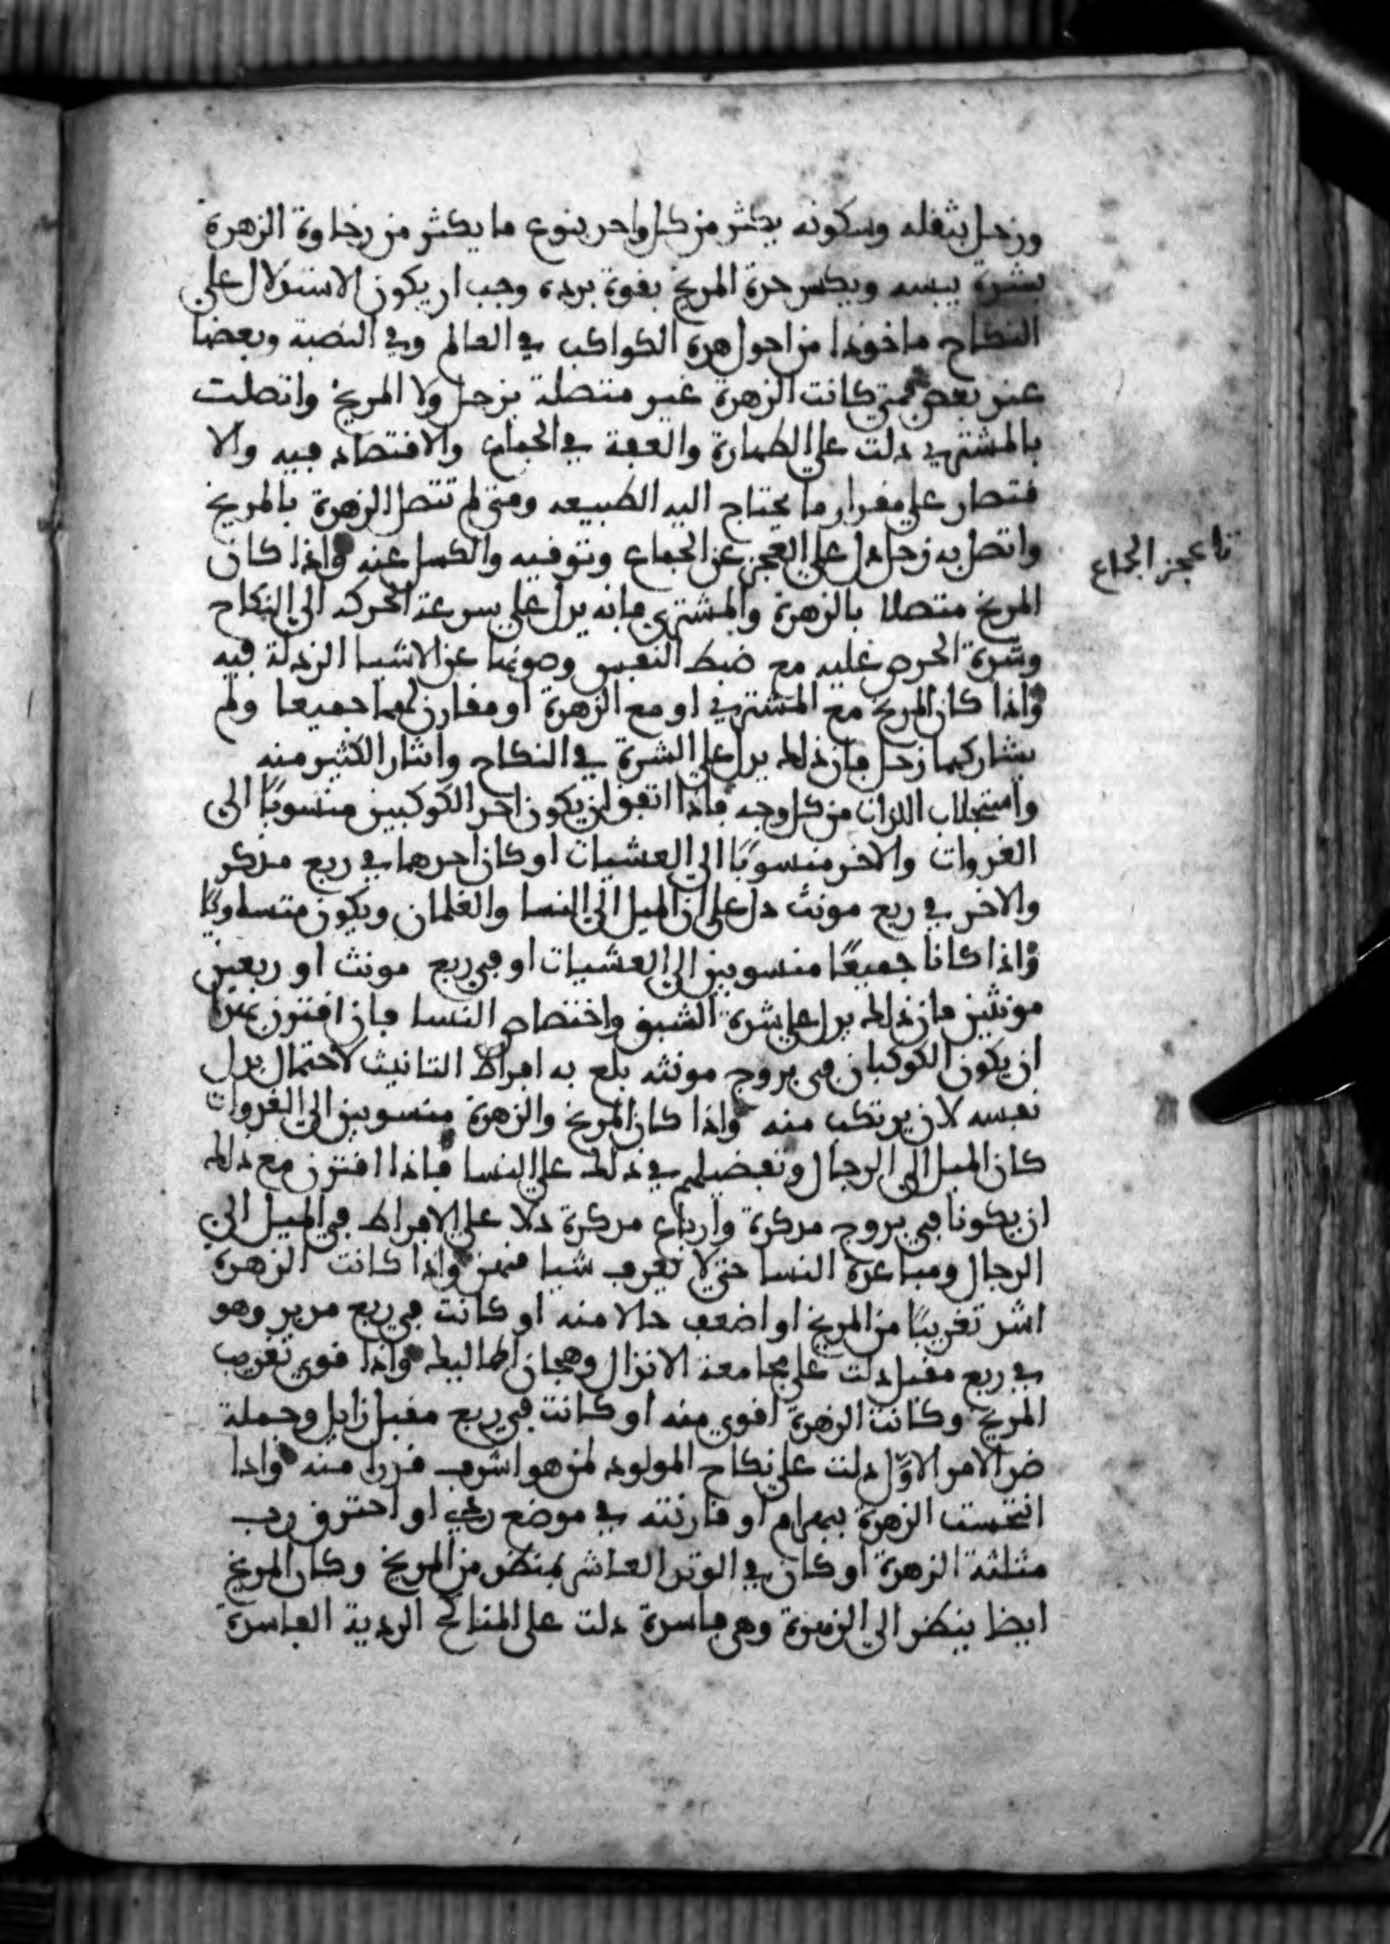 وزحل بثقله وسكونه يكثر من كل واحد بنوع ما يكثر من رخاوة الزهرة
بشدة يبسه ويكسر حدة المريخ بقوة برده وجب ان يكون الاستدلال على
النكاح ماخوذا من احول هذه الكواكب في العالم وفي النصبة وبعضا
عند بعض فمتى كانت الزهرة غير متصلة بزحل ولا المريخ واتصلت
بالمشتري دلت على الطهارة والعفة في الجماع والاقتصاد فيه والا
قتصار على مقدار ما يحتاج اليه الطبيعه ومتى لم تتصل الزهرة بالمريخ
واتصل به زحل دل على العجز عن الجماع وتوقيه والكسل عنه واذا كان
تا عجز الجماع
المريخ متصلا بالزهرة والمشتري فانه يدل على سرعة الحركه الى النكاح
وشدة الحرص عليه مع ضبط النفس وصونها عن الاشيا الرذلة فيه
واذا كان المريخ مع المشتري او مع الزهرة او مقارن لهما جميعا ولم
يشاركهما زحل فان ذلك يدل على الشدة في النكاح وايثار الكثير منه
واستجلاب اللذات من كل وجه فاذا اتفق ان يكون احد الكوكبين منسوبًا الى
الغدوات والاخر منسوبًا الى العشيات او كان احدهما في ربع مذكر
والاخر في ربع مونث دل على ان الميل الى النسا والغلمان ويكون متساويًا
واذا كانا جميعًا منسوبين الى العشيات او في ربع مونث او ربعين
مونثين فان ذلك يدل على شدة الشبق واختصاص النسا فان اقترن بهذا
ان يكون الكوكبان في بروج مونثه بلغ به افراط التانيث لاحتمال بذل
نفسه لان يرتكب منه واذا كان المريخ والزهرة منسوبين الى الغدوات
كان الميل الى الرجال وتفضيلهم في ذلك على النسا فاذا اقترن مع ذلك
ان يكونا في بروج مذكرة وارباع مذكرة دلا على الافراط في الميل الى
الرجال ومباعدة النسا حتى لا يعرف شيا منهن واذا كانت الزهرة
اشد تغريبًا من المريخ او اضعف حالا منه او كانت في ربع مدبر وهو
في ربع مقبل دلت على مجامعة الانزال واذا قوي تغريب
المريخ وكانت الزهرة اقوى منه او كانت في ربع مقبل زايل وجملة
ضد الامر الاول دلت على نكاح المولود لمن هو اشرف قدرا منه واذا
انتحست الزهرة ببهرام او قارنته في موضع ردي او احترق رب
مثلثة الزهرة او كان في الوتد العاشر بمنظر من المريخ وكان المريخ
ايضا ينظر الى الزهرة وهي فاسدة دلت على المناكح الردية الفاسدة